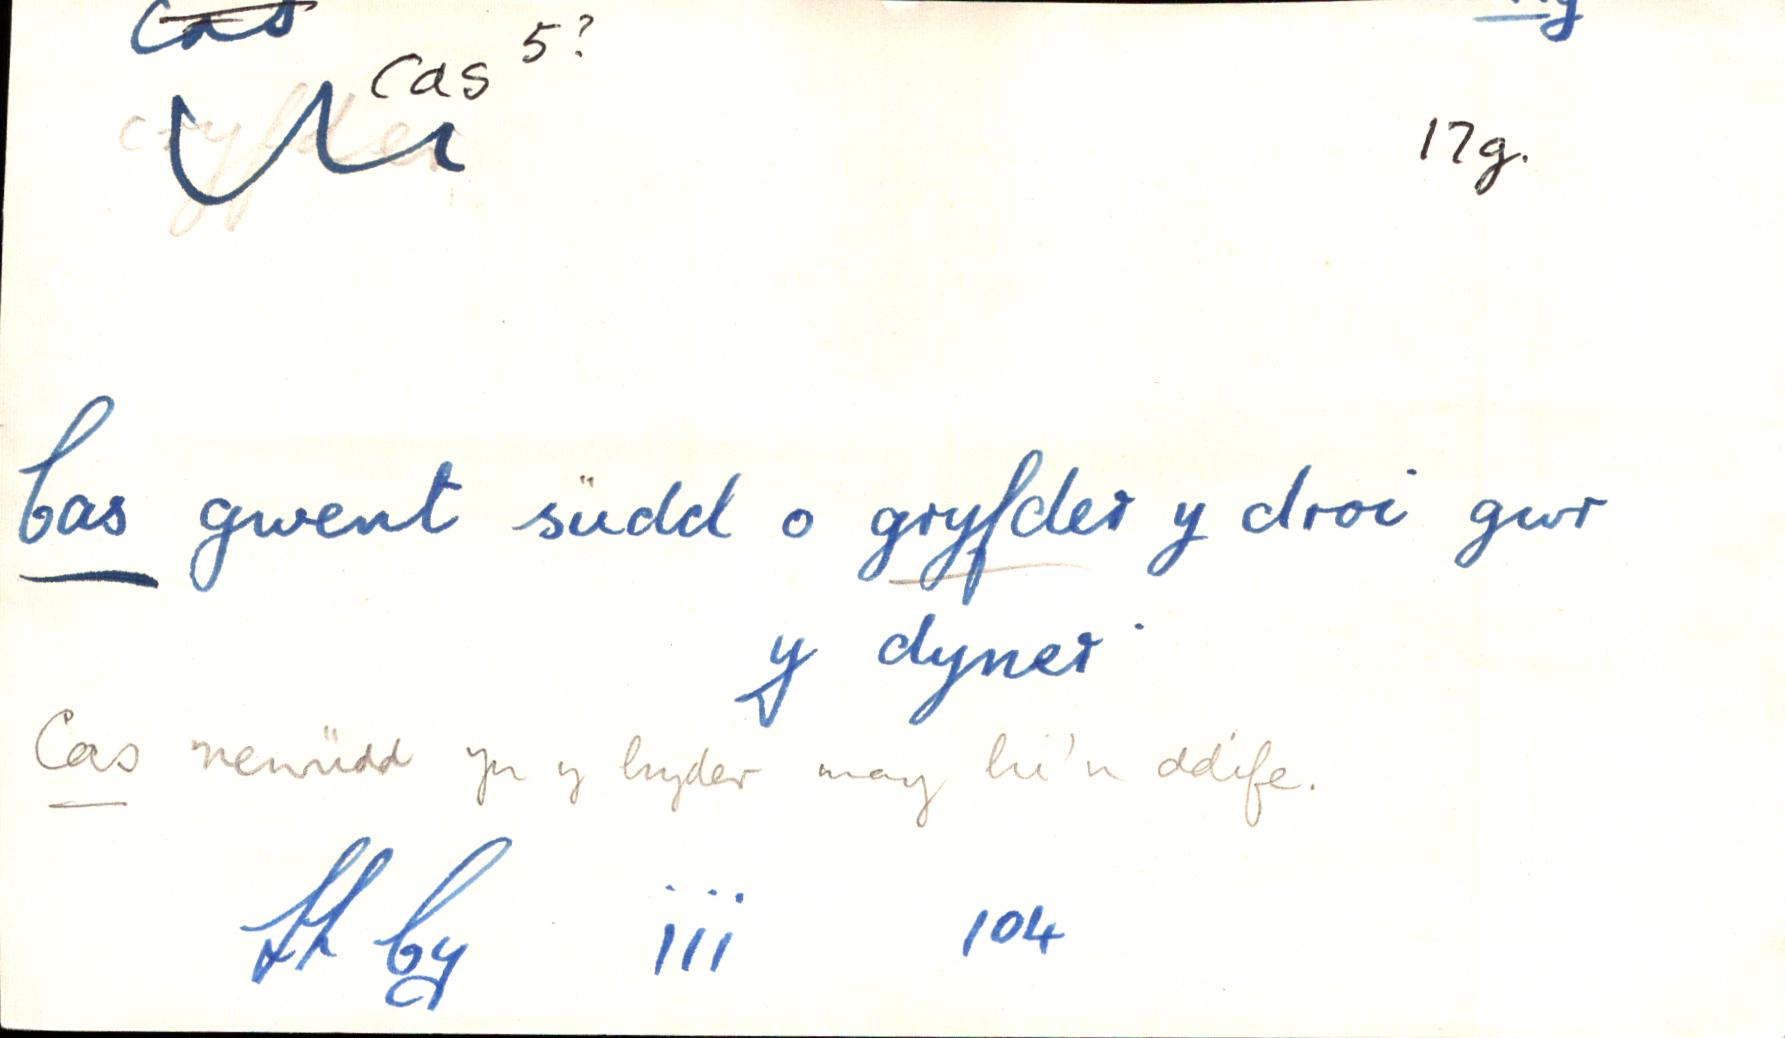 cas
Cas 5?
cryfder
17g.
Cas gwent südd o gryfder y droi gwr
y dyner
Cas newüdd yn y hyder may hi'n ddife.
Ll Cy iii 104